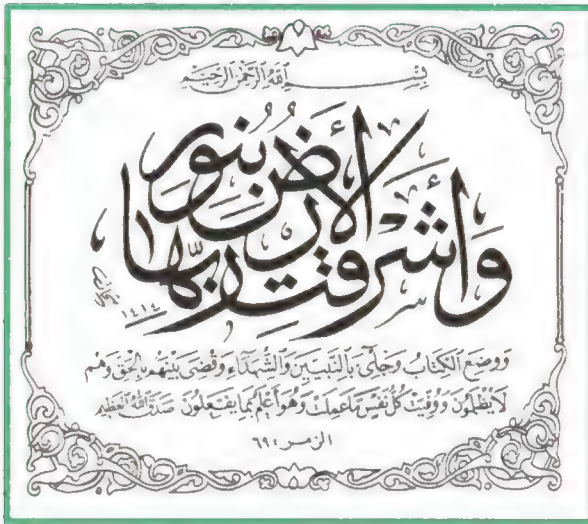 بسم الله الرحمن الرحيم
وأشرقت الأرض بنور ربها
١٤١٤
ووضع الكتاب وجآىء بالنبيين والشهدآء وقضى بينهم بالحق وهم
لا يظلمون ووفيت كل نفس ما عملت وهو أعلم بما يفعلون صدق الله العظيم
الزمر : ٦٩